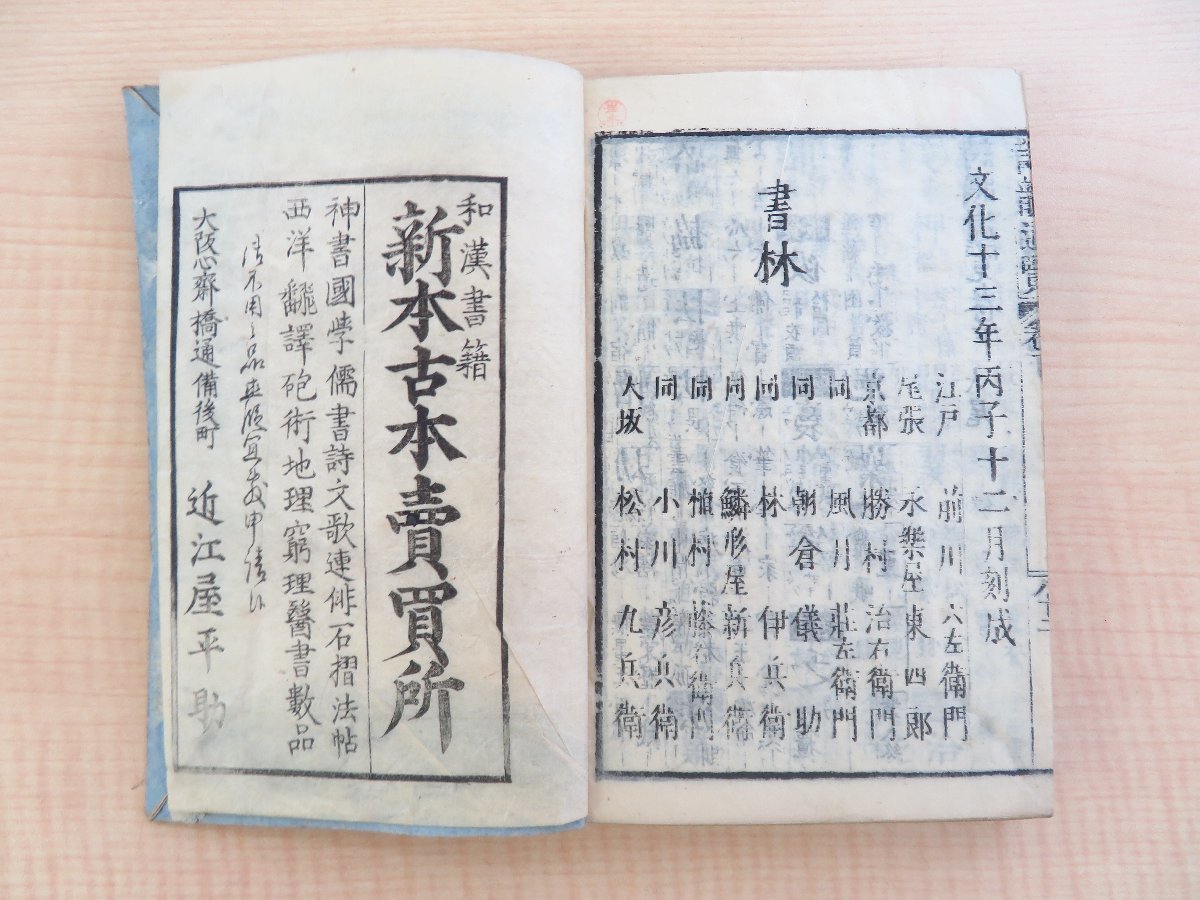 文化十三年丙子十二月刻成
書林
江戸 前川 六左衛門
尾張 永樂屋 東四郎
京都 勝村 治右衛門
同 風月 莊左衛門
同 朝倉 儀助
同 林 伊兵衛
同 鱗形屋 新兵衛
同 植村 藤右衛門
同 小川 彦兵衛
大坂 松村 九兵衛
和漢書籍
新本古本賣買所
神書國學儒書詩文歌連俳石摺法帖
西洋飜譯砲術地理窮理醫書數品
大阪心齋橋通備後町 近江屋平助